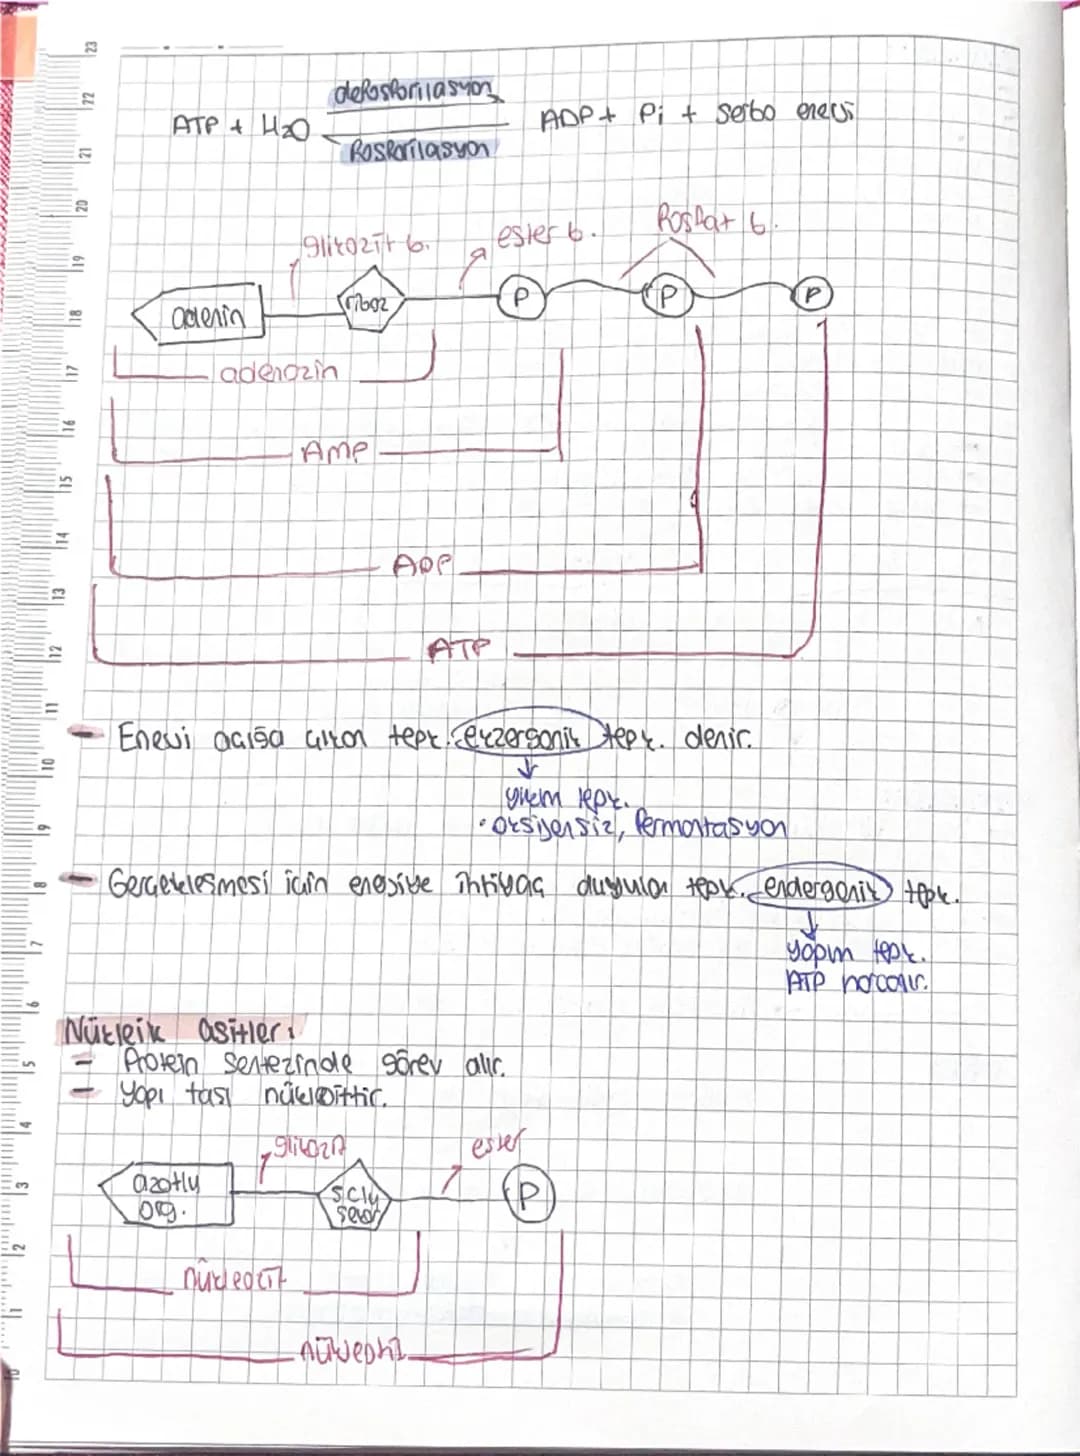 defosforilasyon
ATP + H2O ADP + Pi + Serbo enerji
fosforilasyon
glikozit b. ester b. fosfat b.
adenin riboz P P P
adenozin
AMP
ADP
ATP
- Enerji açığa çıkan tepk. ekzergonik tepk. denir.
yıkım tepk.
• Oksijensiz, fermantasyon
- Gerçekleşmesi için enerjiye ihtiyaç duyulan tepk. endergonik tepk.
yapım tepk.
ATP harcanır.
Nükleik asitler:
- Protein sentezinde görev alır.
- Yapı taşı nükleotittir.
glikozit ester
azotlu org. 5C'lu şeker P
nükleozit
nükleotit